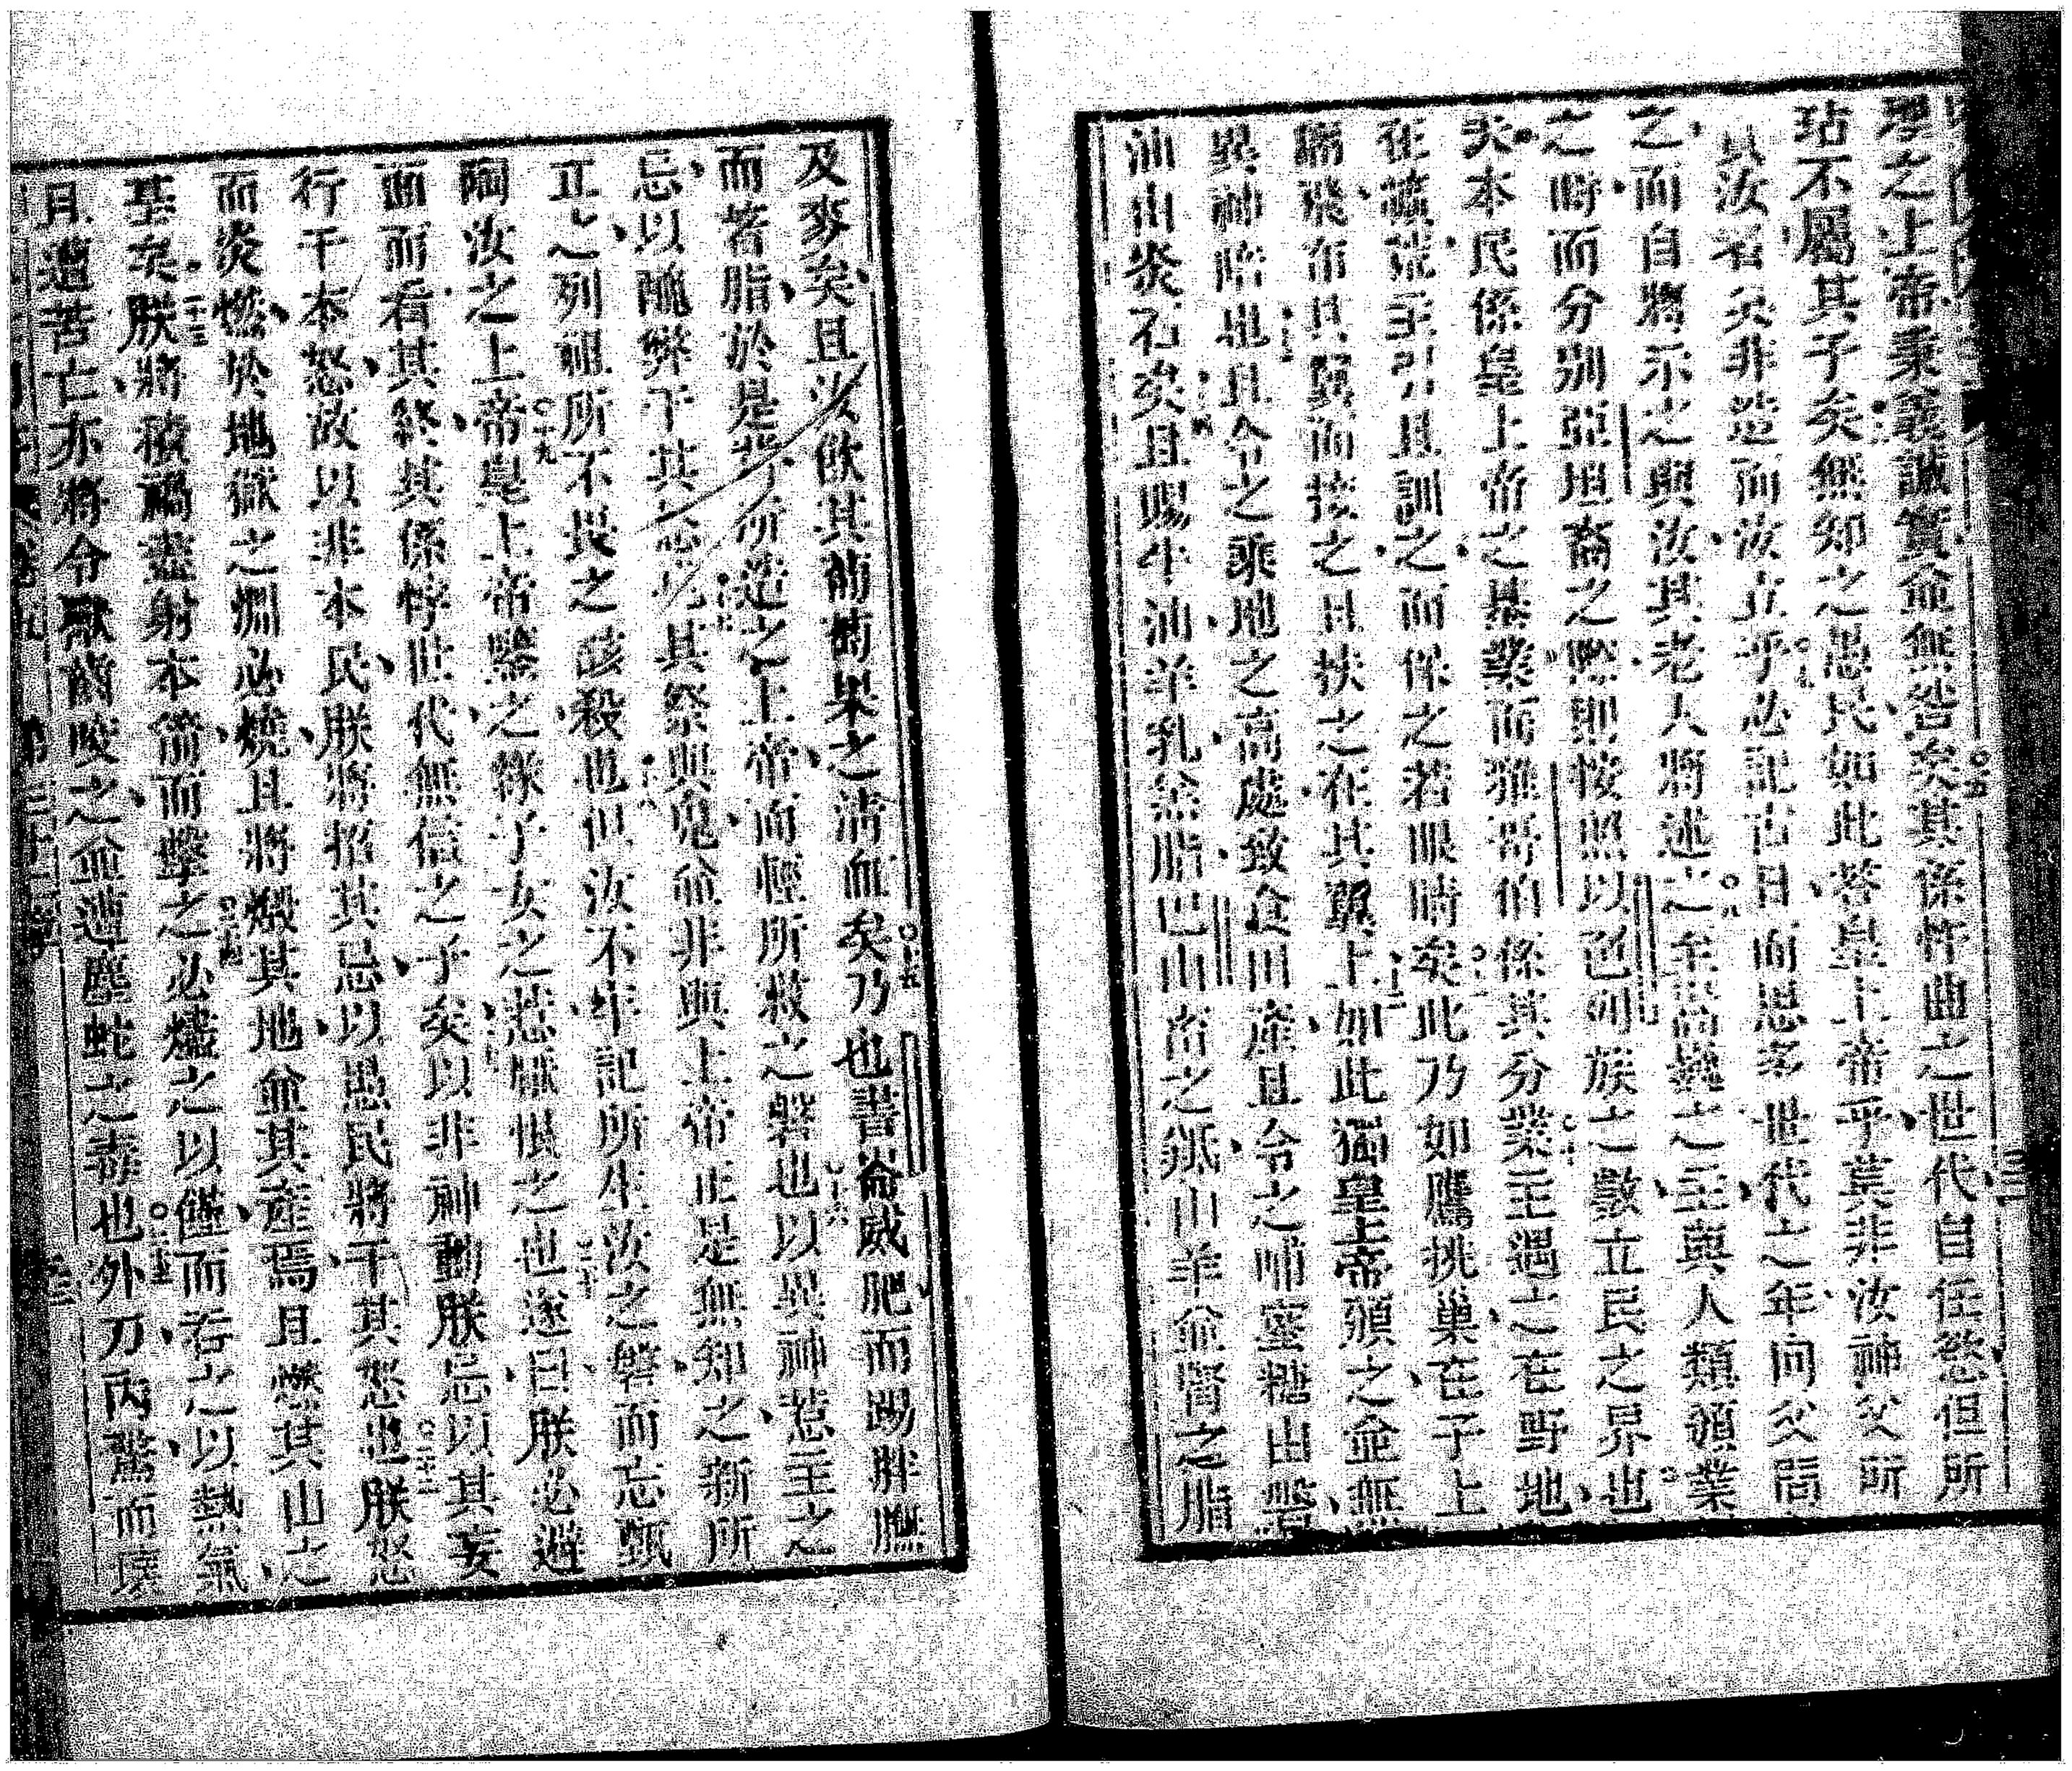 理之上帝秉義誠實並無咎矣其係怍曲之世代自任慾但所
玷不屬其子矣無知之愚民如此答皇上帝乎莫非汝神父所
買汝者矣非造而汝立乎必記古日而思多世代之年问父間
之而自將示之與汝其老人將述之至之主與人類頒業
之時而分別亞坦裔之際則按照以色列族之數立民之界也
夫本民係皇上帝之基業而雅哥伯係其分業至遇之在野地
在曠荒至引且訓之而保之若眼睛矣此乃如鷹挑巢在子上
飛布且翼而接之且扶之在其翼上如此獨皇上帝領之並無
異神陪也且令之乘地之高處致食田產且令之哺蜜糖由磐
油由炎石矣且賜牛油羊乳羔脂巴山畜之羝山羊並腎之脂
及麥矣且汝飲其葡萄果之清血矣乃也書崙威肥而踢胖膿
而著脂於是背所造之上帝而輕所救之磐也以異神惹主之
忌以醜弊干其其祭與鬼並非與上帝正是無知之新所
正之列祖所不畏之該殺也但汝不牢記所生汝之磐而忘甄
陶汝之上帝皇上帝鑒之緣子女之惹慪恨之也遂曰朕必避
面而看其終其係悖世代無信之子矣以非神動朕忌以其妄
行干本怒故以非本民朕將招其忌以愚民將干其怒也朕怒
而炎燃於地獄之淵必燒且將燬其地並其產焉且燃其山之
基矣朕將積禍盡射本箭而擊之必燼之以饉而吞之以熱氣
且遭苦亡亦將令獸齒咬之並遭塵蛇之毒也外刀內驚而壞